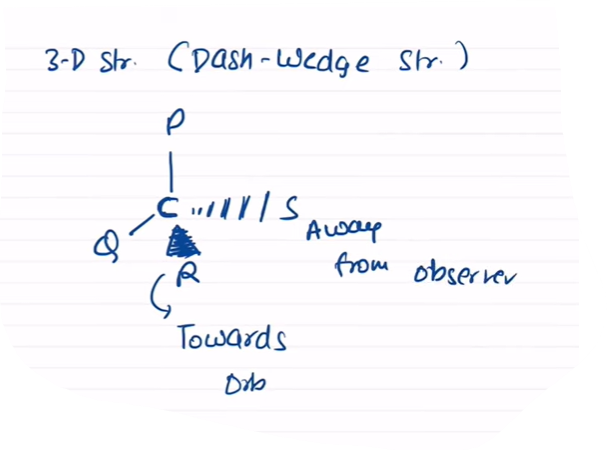 3-D Str. (Dash-Wedge Str.)
P
C S
Q
Away
from observer
R
Towards
Obs